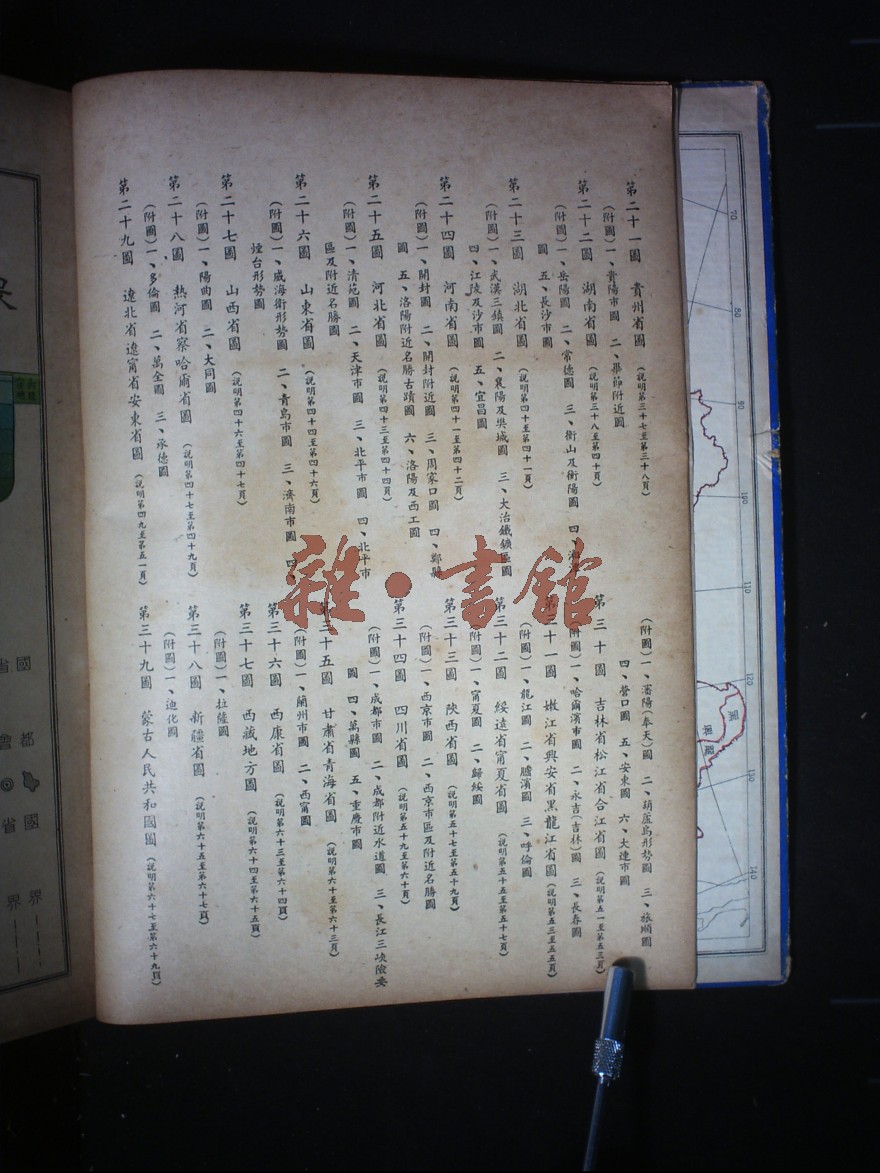 第二十一圖 貴州省圖 (說明第三十七至第三十八頁)
(附圖)一、貴陽市圖 二、畢節附近圖
第二十二圖 湖南省圖 (說明第三十八至第四十頁)
(附圖)一、岳陽圖 二、常德圖 三、衡山及衡陽圖 四、湘
圖 五、長沙市圖
第二十三圖 湖北省圖 (說明第四十至第四十一頁)
(附圖)一、武漢三鎮圖 二、襄陽及樊城圖 三、大冶鐵鑛區圖
四、江陵及沙市圖 五、宜昌圖
第二十四圖 河南省圖 (說明第四十一至第四十二頁)
(附圖)一、開封圖 二、開封附近圖 三、周家口圖 四、鄭縣
圖 五、洛陽附近名勝古蹟圖 六、洛陽及西工圖
第二十五圖 河北省圖 (說明第四十三至第四十四頁)
(附圖)一、清苑圖 二、天津市圖 三、北平市圖 四、北平市
區及附近名勝圖
第二十六圖 山東省圖 (說明第四十四至第四十六頁)
(附圖)一、威海衛形勢圖 二、青島市圖 三、濟南市圖 四、
煙台形勢圖
第二十七圖 山西省圖 (說明第四十六至第四十七頁)
(附圖)一、陽曲圖 二、大同圖
第二十八圖 熱河省察哈爾省圖 (說明第四十七至第四十九頁)
(附圖)一、多倫圖 二、萬全圖 三、承德圖
第二十九圖 遼北省遼甯省安東省圖 (說明第四九至第五一頁)
(附圖)一、瀋陽(奉天)圖 二、葫蘆島形勢圖 三、旅順圖
四、營口圖 五、安東圖 六、大連市圖
第三十圖 吉林省松江省合江省圖 (說明第五一至第五三頁)
(附圖)一、哈爾濱市圖 二、永吉(吉林)圖 三、長春圖
第三十一圖 嫩江省興安省黑龍江省圖 (說明第五三至五五頁)
(附圖)一、龍江圖 二、臚濱圖 三、呼倫圖
第三十二圖 綏遠省甯夏省圖 (說明第五十五至第五十七頁)
(附圖)一、甯夏圖 二、歸綏圖
第三十三圖 陝西省圖 (說明第五十七至第五十九頁)
(附圖)一、西京市圖 二、西京市區及附近名勝圖
第三十四圖 四川省圖 (說明第五十九至第六十頁)
(附圖)一、成都市圖 二、成都附近水道圖 三、長江三峽險要
圖 四、萬縣圖 五、重慶市圖
第三十五圖 甘肅省青海省圖 (說明第六十至第六十三頁)
(附圖)一、蘭州市圖 二、西甯圖
第三十六圖 西康省圖 (說明第六十三至第六十四頁)
第三十七圖 西藏地方圖 (說明第六十四至第六十五頁)
(附圖)一、拉薩圖
第三十八圖 新疆省圖 (說明第六十五至第六十七頁)
(附圖)一、迪化圖
第三十九圖 蒙古人民共和國圖 (說明第六十七至第六十九頁)
雜·書館
70
80
90
100
110
120
130
140
國
省
都
會
國
省
界
界